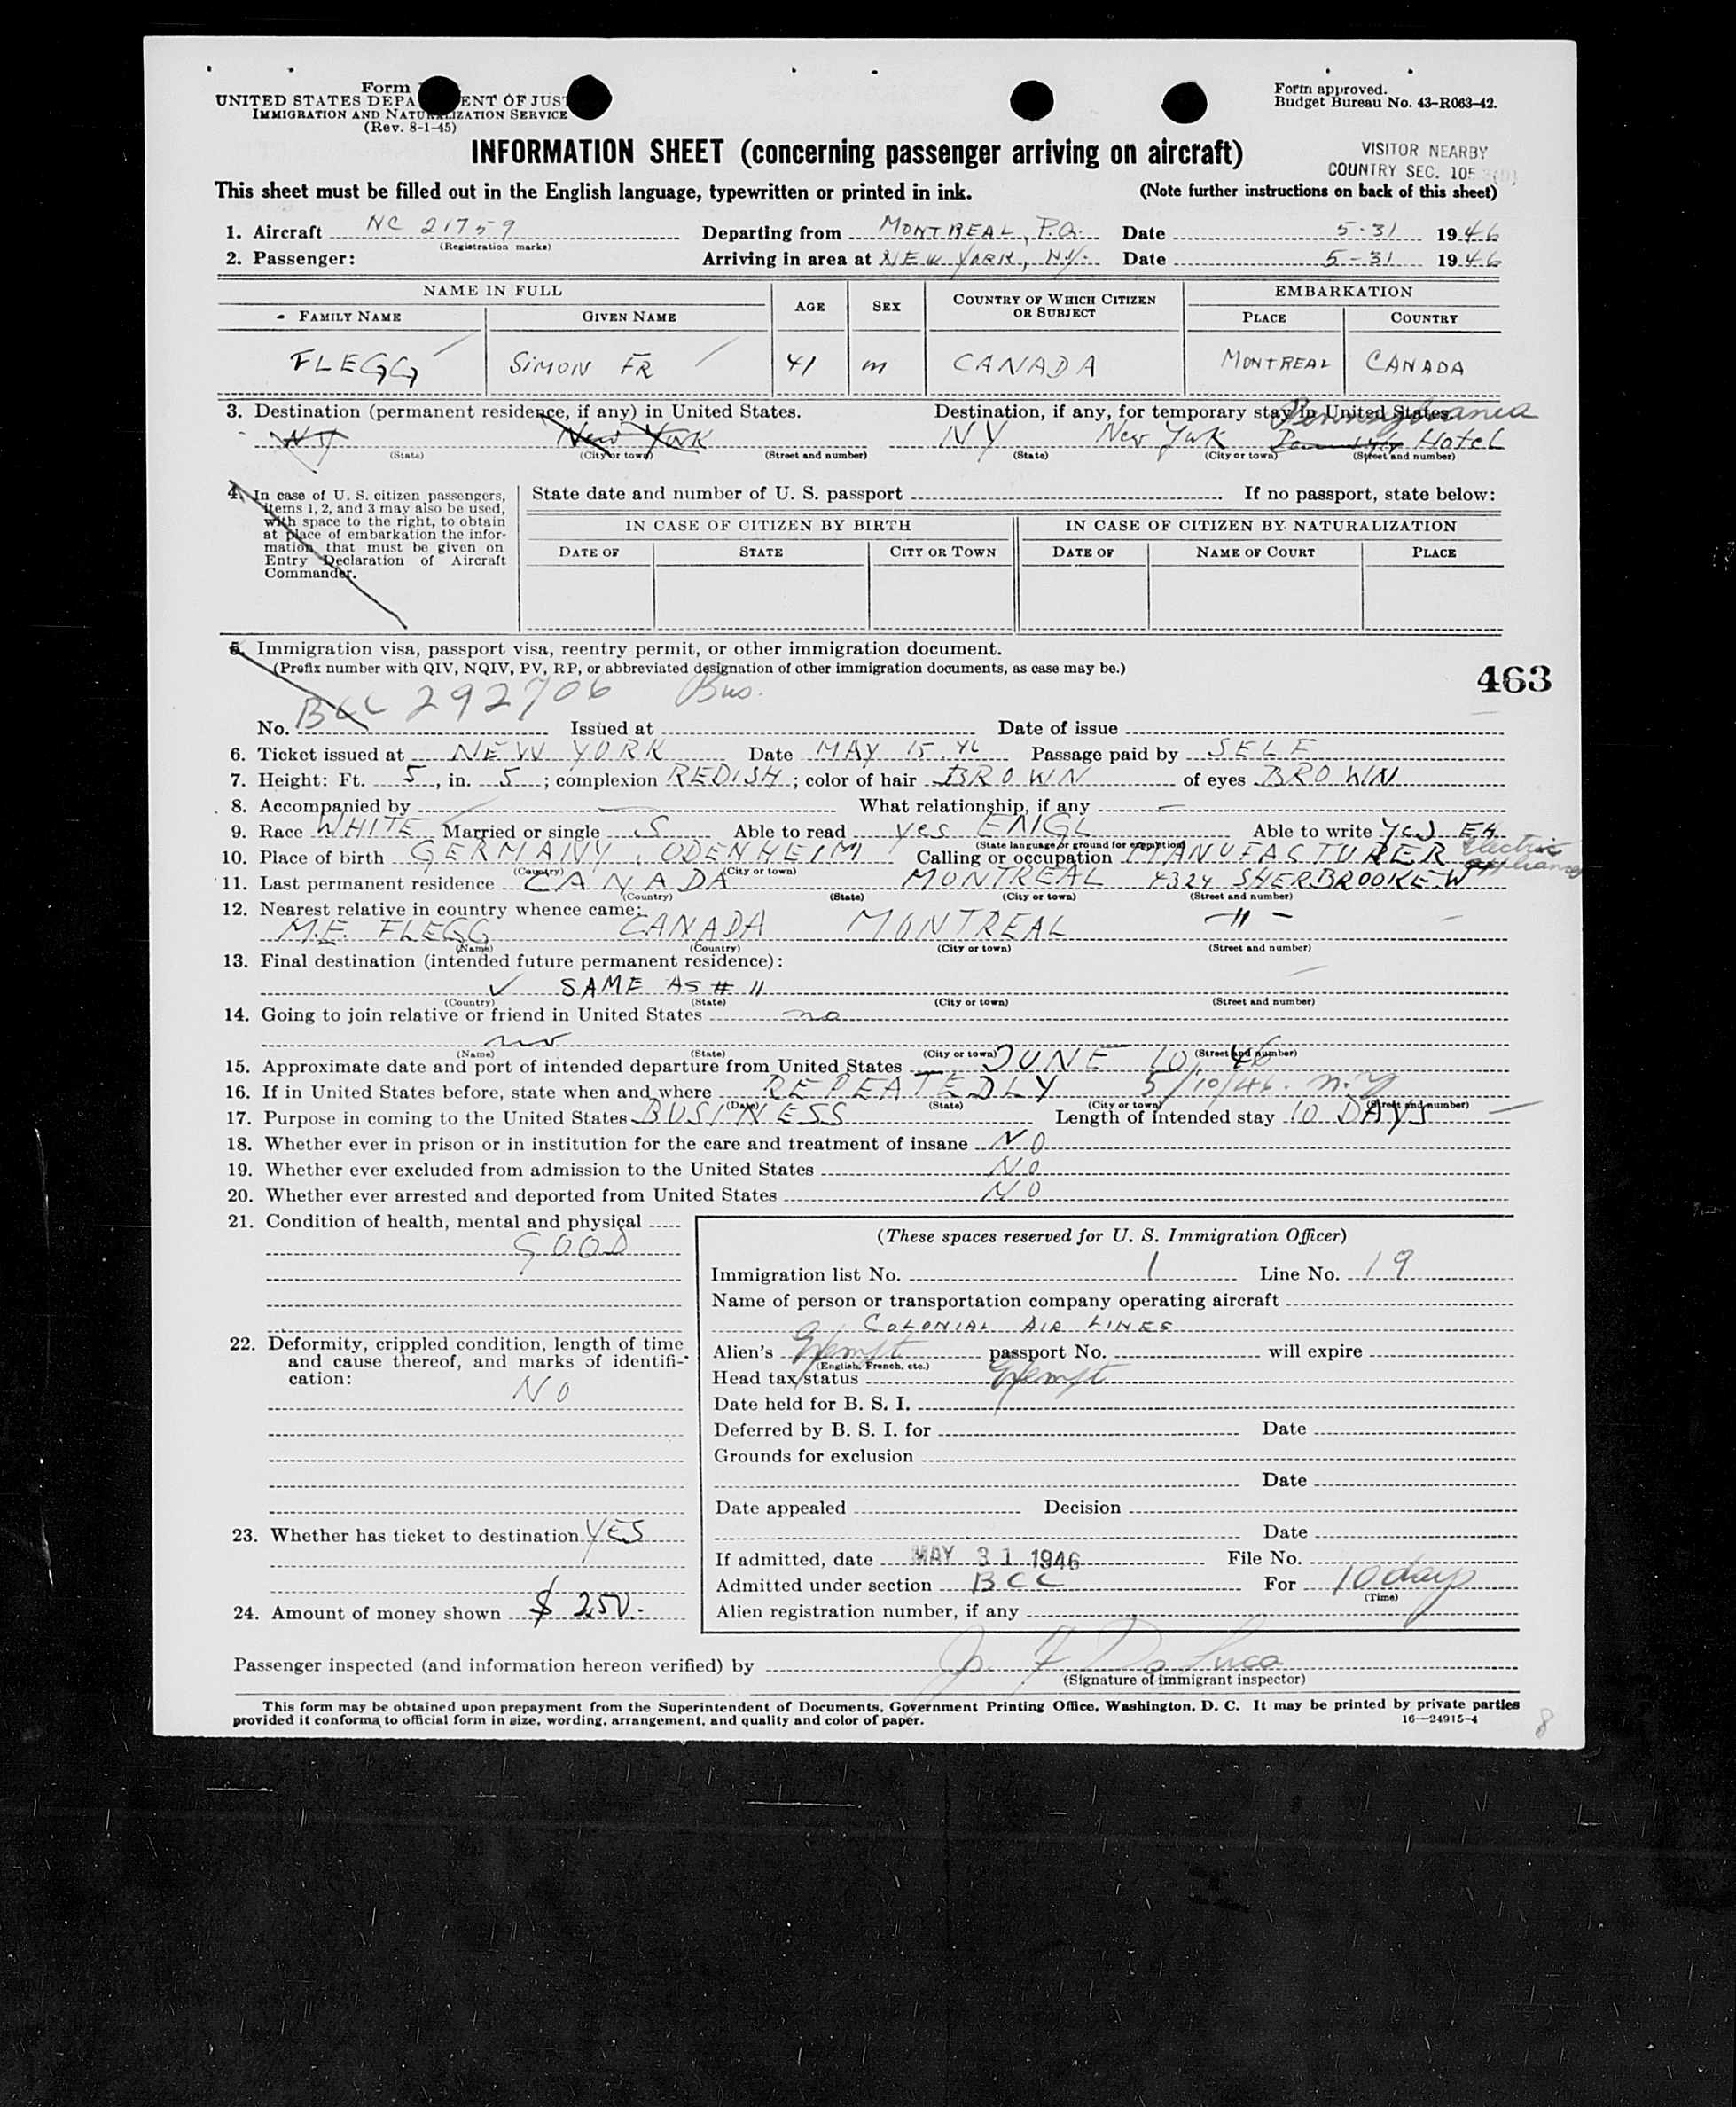 Form
UNITED STATES DEPA ENT OF JUS
IMMIGRATION AND NATURALIZATION SERVICE
(Rev. 8-1-45)
Form approved.
Budget Bureau No. 43-R063-42.
INFORMATION SHEET (concerning passenger arriving on aircraft)
VISITOR NEARBY
COUNTRY SEC. 105
This sheet must be filled out in the English language, typewritten or printed in ink. (Note further instructions on back of this sheet)
1. Aircraft NC 21759 Departing from MONTREAL, P.Q. Date 5-31 1946
(Registration marks)
2. Passenger: Arriving in area at NEW YORK, N.Y. Date 5-31 1946
NAME IN FULL AGE SEX COUNTRY OF WHICH CITIZEN OR SUBJECT EMBARKATION
FAMILY NAME GIVEN NAME PLACE COUNTRY
FLEGG SIMON FR 41 m CANADA MONTREAL CANADA
3. Destination (permanent residence, if any) in United States. Destination, if any, for temporary stay in United States.
Pennsylvania
NY New York NY New York Hotel
(State) (City or town) (Street and number) (State) (City or town) (Street and number)
4. In case of U. S. citizen passengers, items 1, 2, and 3 may also be used, with space to the right, to obtain at place of embarkation the information that must be given on Entry Declaration of Aircraft Commander.
State date and number of U. S. passport . If no passport, state below:
IN CASE OF CITIZEN BY BIRTH IN CASE OF CITIZEN BY NATURALIZATION
DATE OF STATE CITY OR TOWN DATE OF NAME OF COURT PLACE
5. Immigration visa, passport visa, reentry permit, or other immigration document.
(Prefix number with QIV, NQIV, PV, RP, or abbreviated designation of other immigration documents, as case may be.)
463
BCC 292706 Bus.
No. Issued at Date of issue
6. Ticket issued at NEW YORK Date MAY 15.46 Passage paid by SELF
7. Height: Ft. 5, in. 5; complexion REDISH; color of hair BROWN of eyes BROWN
8. Accompanied by — What relationship, if any —
9. Race WHITE Married or single S Able to read yes ENGL Able to write yes EH
(State language or ground for exemption)
10. Place of birth GERMANY, ODENHEIM Calling or occupation MANUFACTURER Electric appliances
(Country) (City or town)
11. Last permanent residence CANADA MONTREAL 4324 SHERBROOKE W
(Country) (State) (City or town) (Street and number)
12. Nearest relative in country whence came:
M.E. FLEGG CANADA MONTREAL -"-
(Name) (Country) (City or town) (Street and number)
13. Final destination (intended future permanent residence):
✓ SAME AS # 11
(Country) (State) (City or town) (Street and number)
14. Going to join relative or friend in United States no
no
(Name) (State) (City or town) (Street and number)
15. Approximate date and port of intended departure from United States JUNE 10, 46
16. If in United States before, state when and where REPEATEDLY 5/10/46. N.Y
(Date) (State) (City or town) (Street and number)
17. Purpose in coming to the United States BUSINESS Length of intended stay 10 DAYS
18. Whether ever in prison or in institution for the care and treatment of insane NO
19. Whether ever excluded from admission to the United States NO
20. Whether ever arrested and deported from United States NO
21. Condition of health, mental and physical
GOOD
22. Deformity, crippled condition, length of time and cause thereof, and marks of identification:
NO
23. Whether has ticket to destination YES
24. Amount of money shown $ 250.-
(These spaces reserved for U. S. Immigration Officer)
Immigration list No. 1 Line No. 19
Name of person or transportation company operating aircraft
COLONIAL AIR LINES
Alien's Exempt passport No. will expire
(English, French, etc.)
Head tax status Exempt
Date held for B. S. I.
Deferred by B. S. I. for Date
Grounds for exclusion
Date
Date appealed Decision
Date
If admitted, date MAY 31 1946 File No.
Admitted under section BCC For 10 days
(Time)
Alien registration number, if any
Passenger inspected (and information hereon verified) by J. F. De Luca
(Signature of immigrant inspector)
This form may be obtained upon prepayment from the Superintendent of Documents, Government Printing Office, Washington, D. C. It may be printed by private parties
provided it conforms to official form in size, wording, arrangement, and quality and color of paper. 16—24915-4
8